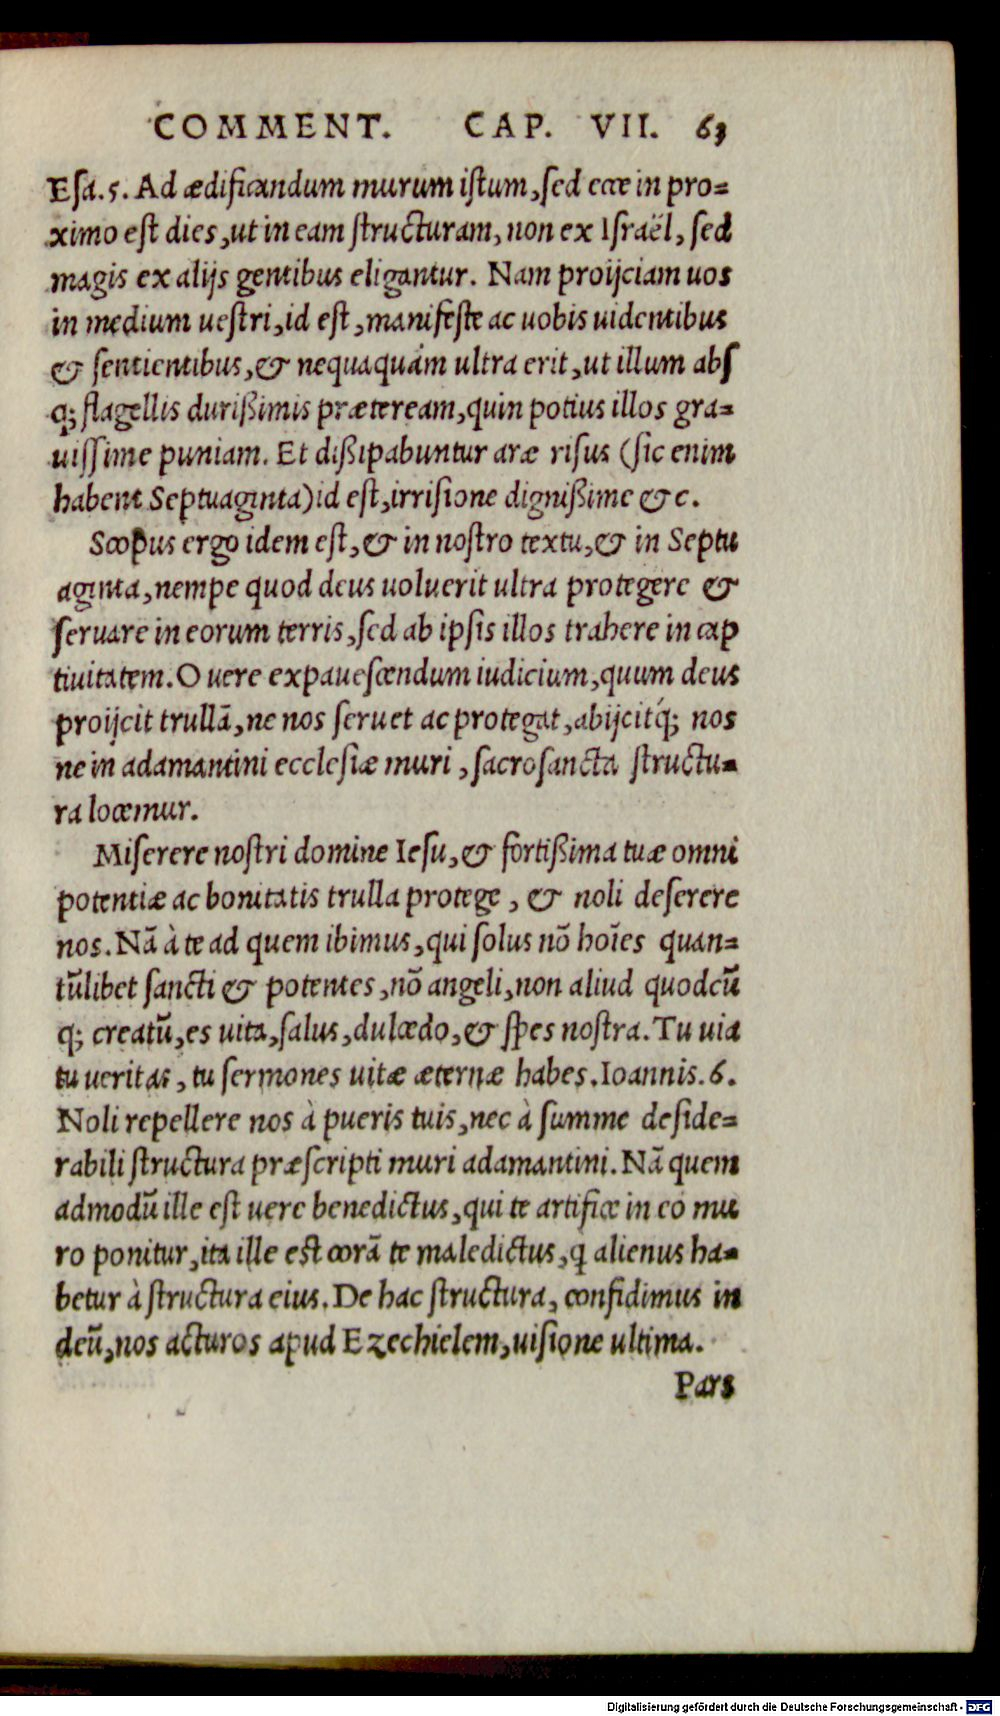 COMMENT. CAP. VII. 63
Eſa. 5. Ad ædificandum murum iſtum, ſed ecce in pro=
ximo eſt dies, ut in eam ſtructuram, non ex Iſraël, ſed
magis ex alijs gentibus eligantur. Nam proijciam uos
in medium ueſtri, id eſt, manifeſte ac uobis uidentibus
& ſentientibus, & nequaquàm ultra erit, ut illum abſ
q; flagellis durißimis præteream, quin potius illos gra=
uiſſime puniam. Et dißipabuntur aræ riſus (ſic enim
habent Septuaginta) id eſt, irriſione dignißime &c.
Scopus ergo idem eſt, & in noſtro textu, & in Septu
aginta, nempe quod deus uoluerit ultra protegere &
ſeruare in eorum terris, ſed ab ipſis illos trahere in cap
tiuitatem. O uere expaueſcendum iudicium, quum deus
proijcit trullā, ne nos ſeruet ac protegat, abijcitq́; nos
ne in adamantini eccleſiæ muri, ſacroſancta ſtructu=
ra locemur.
Miſerere noſtri domine Ieſu, & fortißima tuæ omni
potentiæ ac bonitatis trulla protege, & noli deſerere
nos. Nā à te ad quem ibimus, qui ſolus nō hoīes quan=
tūlibet ſancti & potentes, nō angeli, non aliud quodcū
q; creatū, es uita, ſalus, dulcedo, & ſpes noſtra. Tu uia
tu ueritas, tu ſermones uitæ æternæ habes. Ioannis. 6.
Noli repellere nos à pueris tuis, nec à ſumme deſide=
rabili ſtructura præſcripti muri adamantini. Nā quem
admodū ille eſt uere benedictus, qui te artifice in eo mu
ro ponitur, ita ille eſt corā te maledictus, q̨ alienus ha=
betur à ſtructura eius. De hac ſtructura, confidimus in
deū, nos acturos apud Ezechielem, uiſione ultima.
Pars
Digitalisierung gefördert durch die Deutsche Forschungsgemeinschaft - DFG